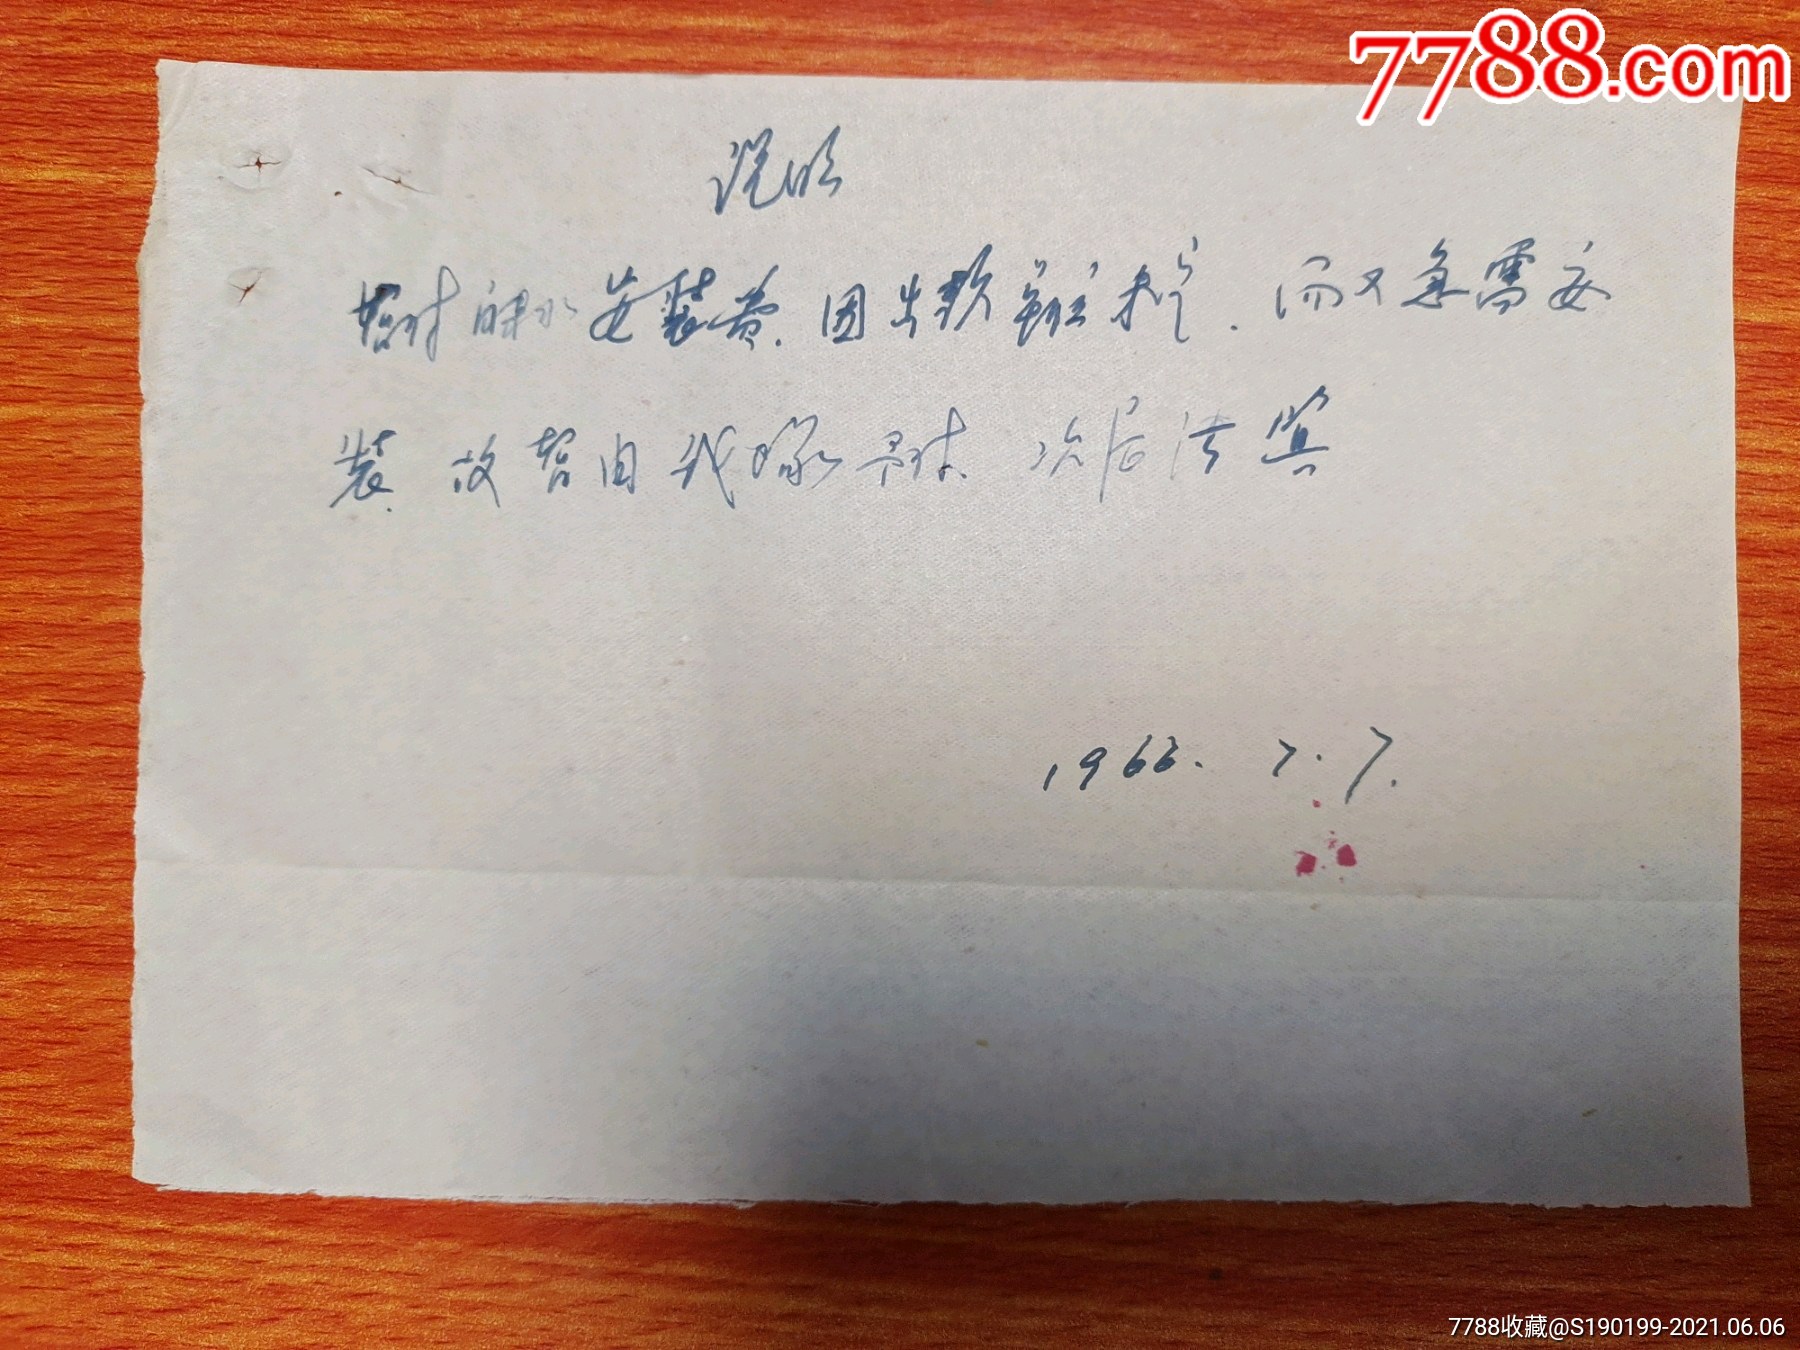 7788.com
说明
暂付自来水安装费.因出款单位未定.而又急需安
装.故暂由我家付.次后法算
1966.7.7.
7788收藏@S190199-2021.06.06